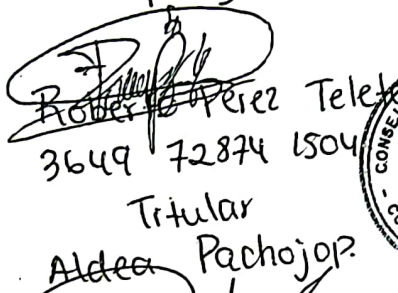 Roberto Pérez Telet
3649 72874 1504
Tritular
Aldea Pachojop.
CONSE